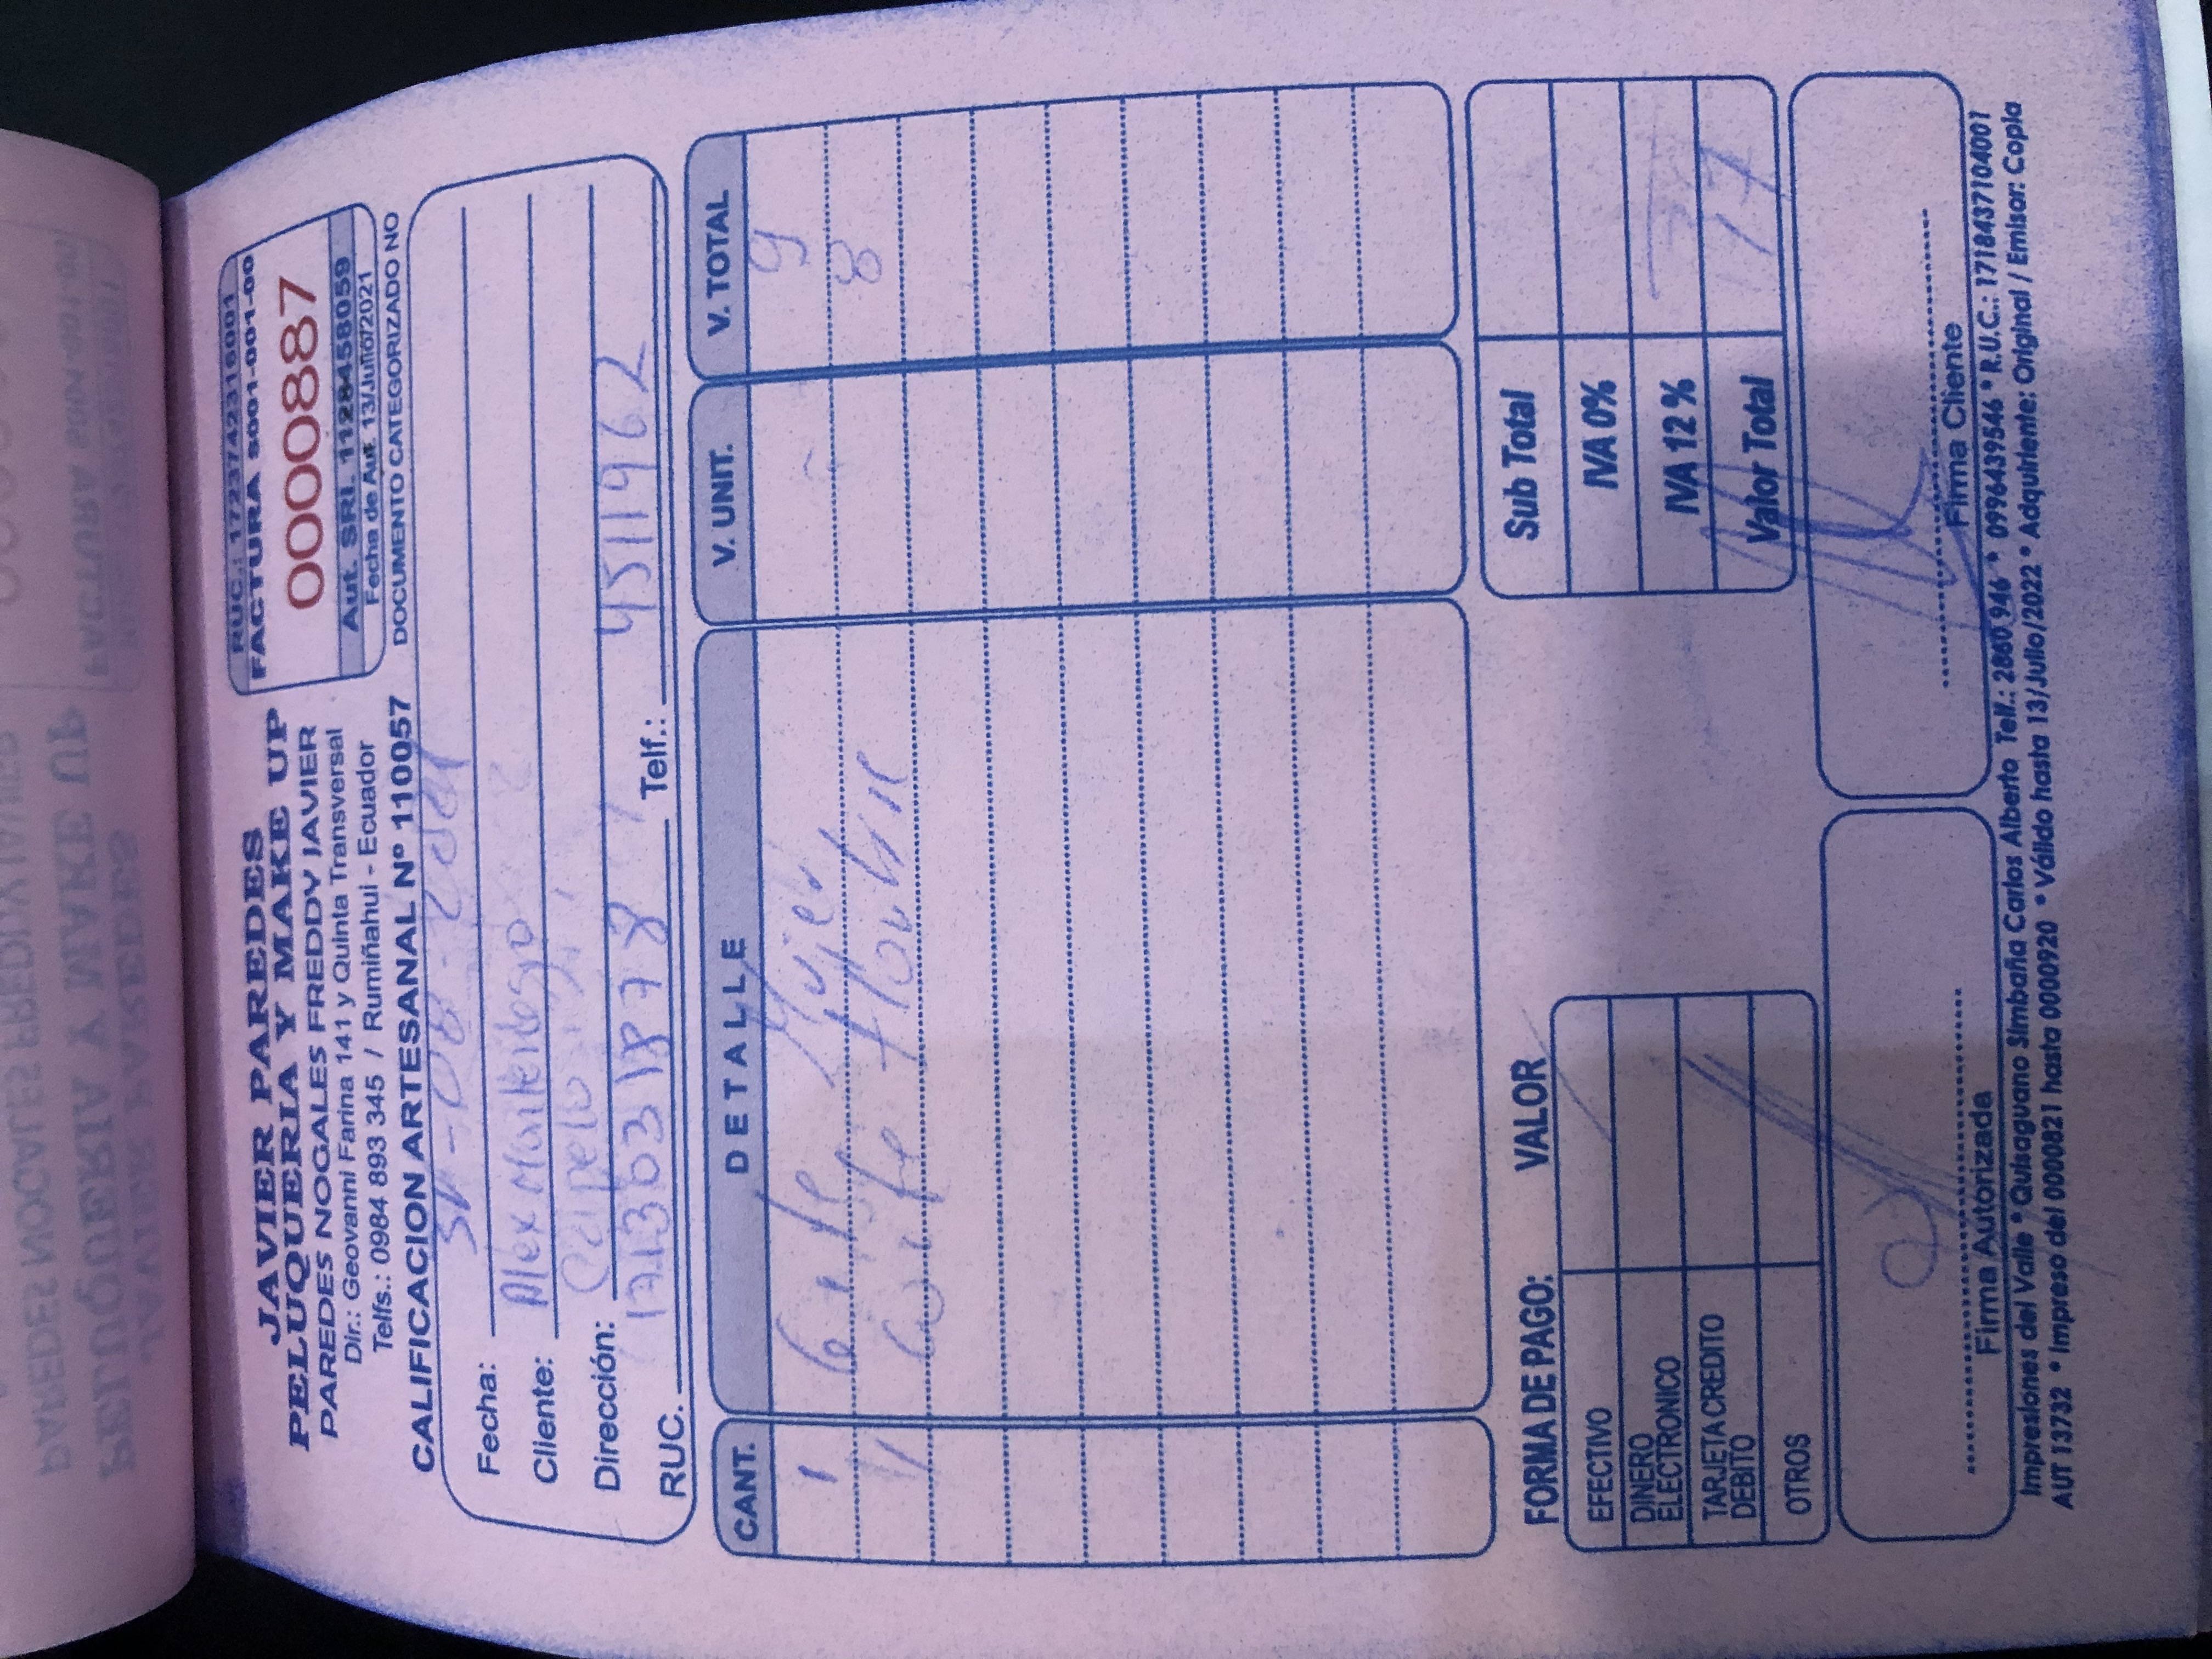 JAVIER PAREDES
PELUQUERIA Y MAKE UP
PAREDES NOGALES FREDDY JAVIER
Dir.: Geovanni Farina 141 y Quinta Transversal
Telfs.: 0984 893 345 / Rumiñahui - Ecuador
CALIFICACION ARTESANAL Nº 110057
RUC.: 1723742316001
FACTURA S001-001-00
0000887
Aut. SRI. 1128458059
Fecha de Aut. 13/Julio/2021
DOCUMENTO CATEGORIZADO NO
Fecha:
Cliente: Alex
Dirección: Capelo
RUC. Telf.: 4511962
CANT. DETALLE V. UNIT. V. TOTAL
1 Corte Mujer 9
1 Corte Hombre 8
FORMA DE PAGO: VALOR
EFECTIVO
DINERO ELECTRONICO
TARJETA CREDITO DEBITO
OTROS
Sub Total
IVA 0%
IVA 12 %
Valor Total 17
Firma Autorizada
Firma Cliente
Impresiones del Valle * Quisaguano Simbaña Carlos Alberto Telf.: 2860 946 * 0996439546 * R.U.C.: 1718437104001
AUT 13732 * Impreso del 0000821 hasta 0000920 * Válido hasta 13/Julio/2022 * Adquiriente: Original / Emisor: Copia